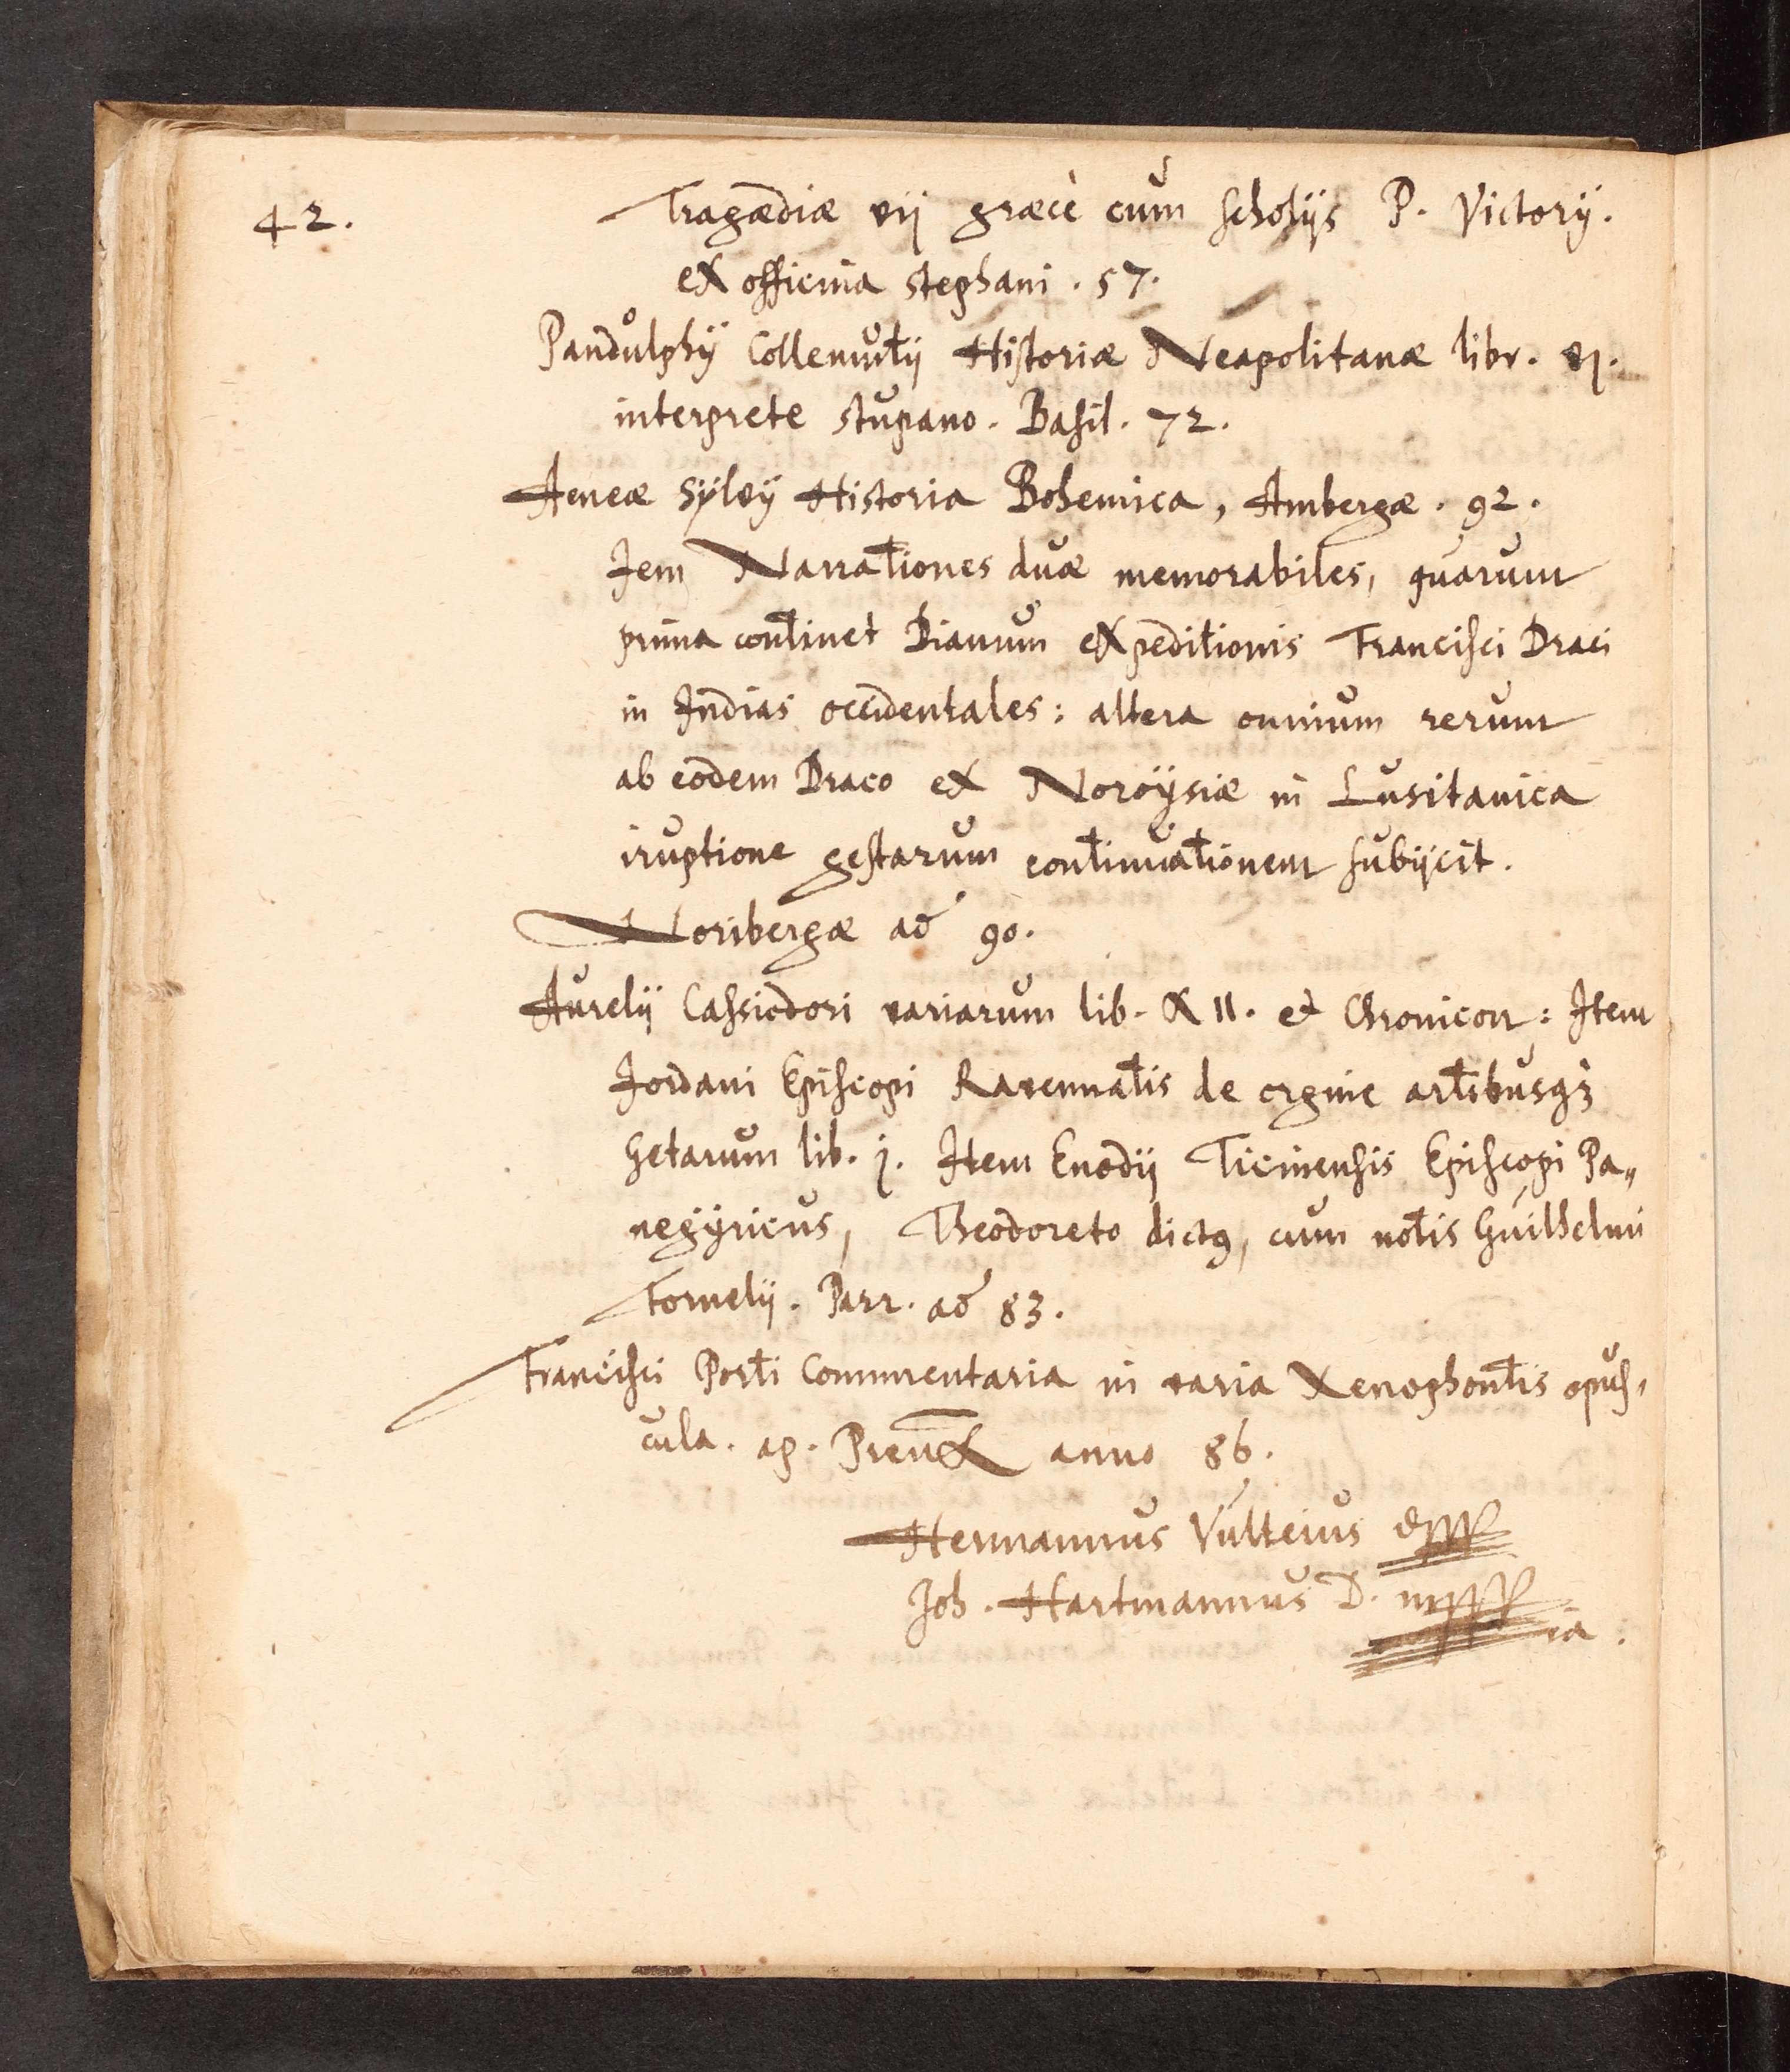 42.
Tragædiæ vij græcè cum scholijs P. Victorij.
ex officina Stephani. 57.
Pandulphij Collenutij Historiæ Neapolitanæ libr. vj.
interprete Stupano. Basil. 72.
Aeneæ Sylvij Historia Bohemica, Ambergæ. 92.
Jem Narrationes duæ memorabiles, quarum
prima continet Diarium expeditionis Francisci Draci
in Indias occidentales: altera omnium rerum
ab eodem Draco ex Norvysiæ in Lusitanica
iruptione gestarum continuationem subijcit.
Noribergæ aō 90.
Aurelij Cassiodori variarum lib. XII. et Chronicon: Item
Jordani Episcopi Ravennatis de orgine artibusqȝ
Getarum lib. j. Item Enodij Ticinensis Episcopi Pa„
negyricus, Theodoreto dictꝰ, cum notis Guilhelmi
Fornelij. Parr. aō 83.
Francisci Porti Commentaria in varia Xenophontis opus,
cula. ap. anno 86.
Hermannus Vulteius
Joh. Hartmannus D.